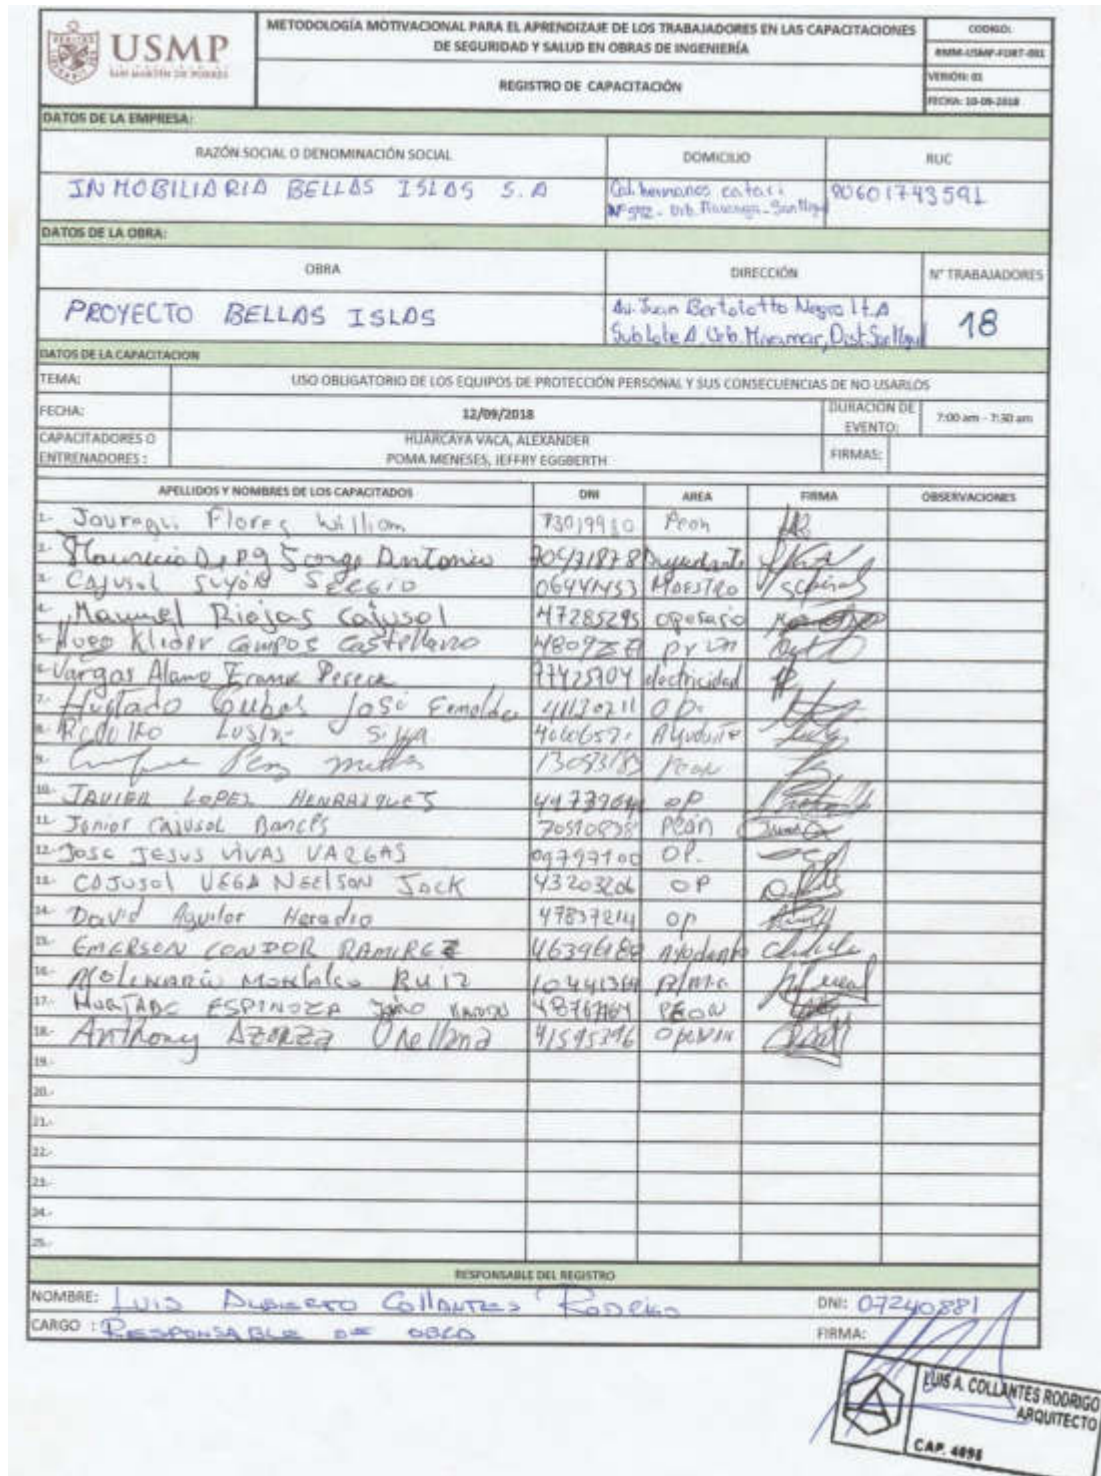 USMP
SAN MARTÍN DE PORRES
METODOLOGÍA MOTIVACIONAL PARA EL APRENDIZAJE DE LOS TRABAJADORES EN LAS CAPACITACIONES
DE SEGURIDAD Y SALUD EN OBRAS DE INGENIERÍA
REGISTRO DE CAPACITACIÓN
CODIGO:
RMM-USMP-FORT-001
VERSIÓN: 01
FECHA: 10-09-2018
DATOS DE LA EMPRESA:
RAZÓN SOCIAL O DENOMINACIÓN SOCIAL DOMICILIO RUC
INMOBILIARIA BELLAS ISLAS S.A
Cal. hermanos catari
Nº 592 - Urb. Maranga - San Miguel
20601743591
DATOS DE LA OBRA:
OBRA DIRECCIÓN N° TRABAJADORES
PROYECTO BELLAS ISLAS
Av. Juan Bertolotto Negro lt. A
Sub Lote A, Urb. Miramar, Dist. San Miguel
18
DATOS DE LA CAPACITACION
TEMA: USO OBLIGATORIO DE LOS EQUIPOS DE PROTECCIÓN PERSONAL Y SUS CONSECUENCIAS DE NO USARLOS
FECHA: 12/09/2018 DURACIÓN DE EVENTO: 7:00 am - 7:30 am
CAPACITADORES O ENTRENADORES : HUARCAYA VACA, ALEXANDER
POMA MENESES, JEFFRY EGGBERTH
FIRMAS:
APELLIDOS Y NOMBRES DE LOS CAPACITADOS DNI AREA FIRMA OBSERVACIONES
1.- Jauregui Flores William Peon
2.- Mauricio Jorge Antonio
3.- Cajusol Suyón Sergio MAESTRO
4.- Manuel Riojas Cajusol 47285295 operario
5.- Hugo Klider Campos Castellano
6.- Vargas Alamo Frank 77425704 electricidad
7.- Hurtado Cubas José 41120211 Op.
8.- Rodolfo Silva
9.- Peon
10.- JAVIER LOPEZ HENRRIQUES op
11.- Junior Cajusol Bances Peón
12.- JOSE JESUS VIVAS VARGAS 09797100 OP.
13.- CAJUSOL VEGA NEELSON JACK 43203206 OP
14.- David Aguilar Heradio 47837214 op
15.- EMERSON CONDOR RAMIREZ Ayudante
16.- Ruiz
17.- HURTADO ESPINOZA PEON
18.- Anthony 41595396
19.-
20.-
21.-
22.-
23.-
24.-
25.-
RESPONSABLE DEL REGISTRO
NOMBRE: LUIS ALBERTO COLLANTES RODRIGO DNI: 07240881
CARGO : RESPONSABLE DE OBRA FIRMA:
LUIS A. COLLANTES RODRIGO
ARQUITECTO
CAP. 4898